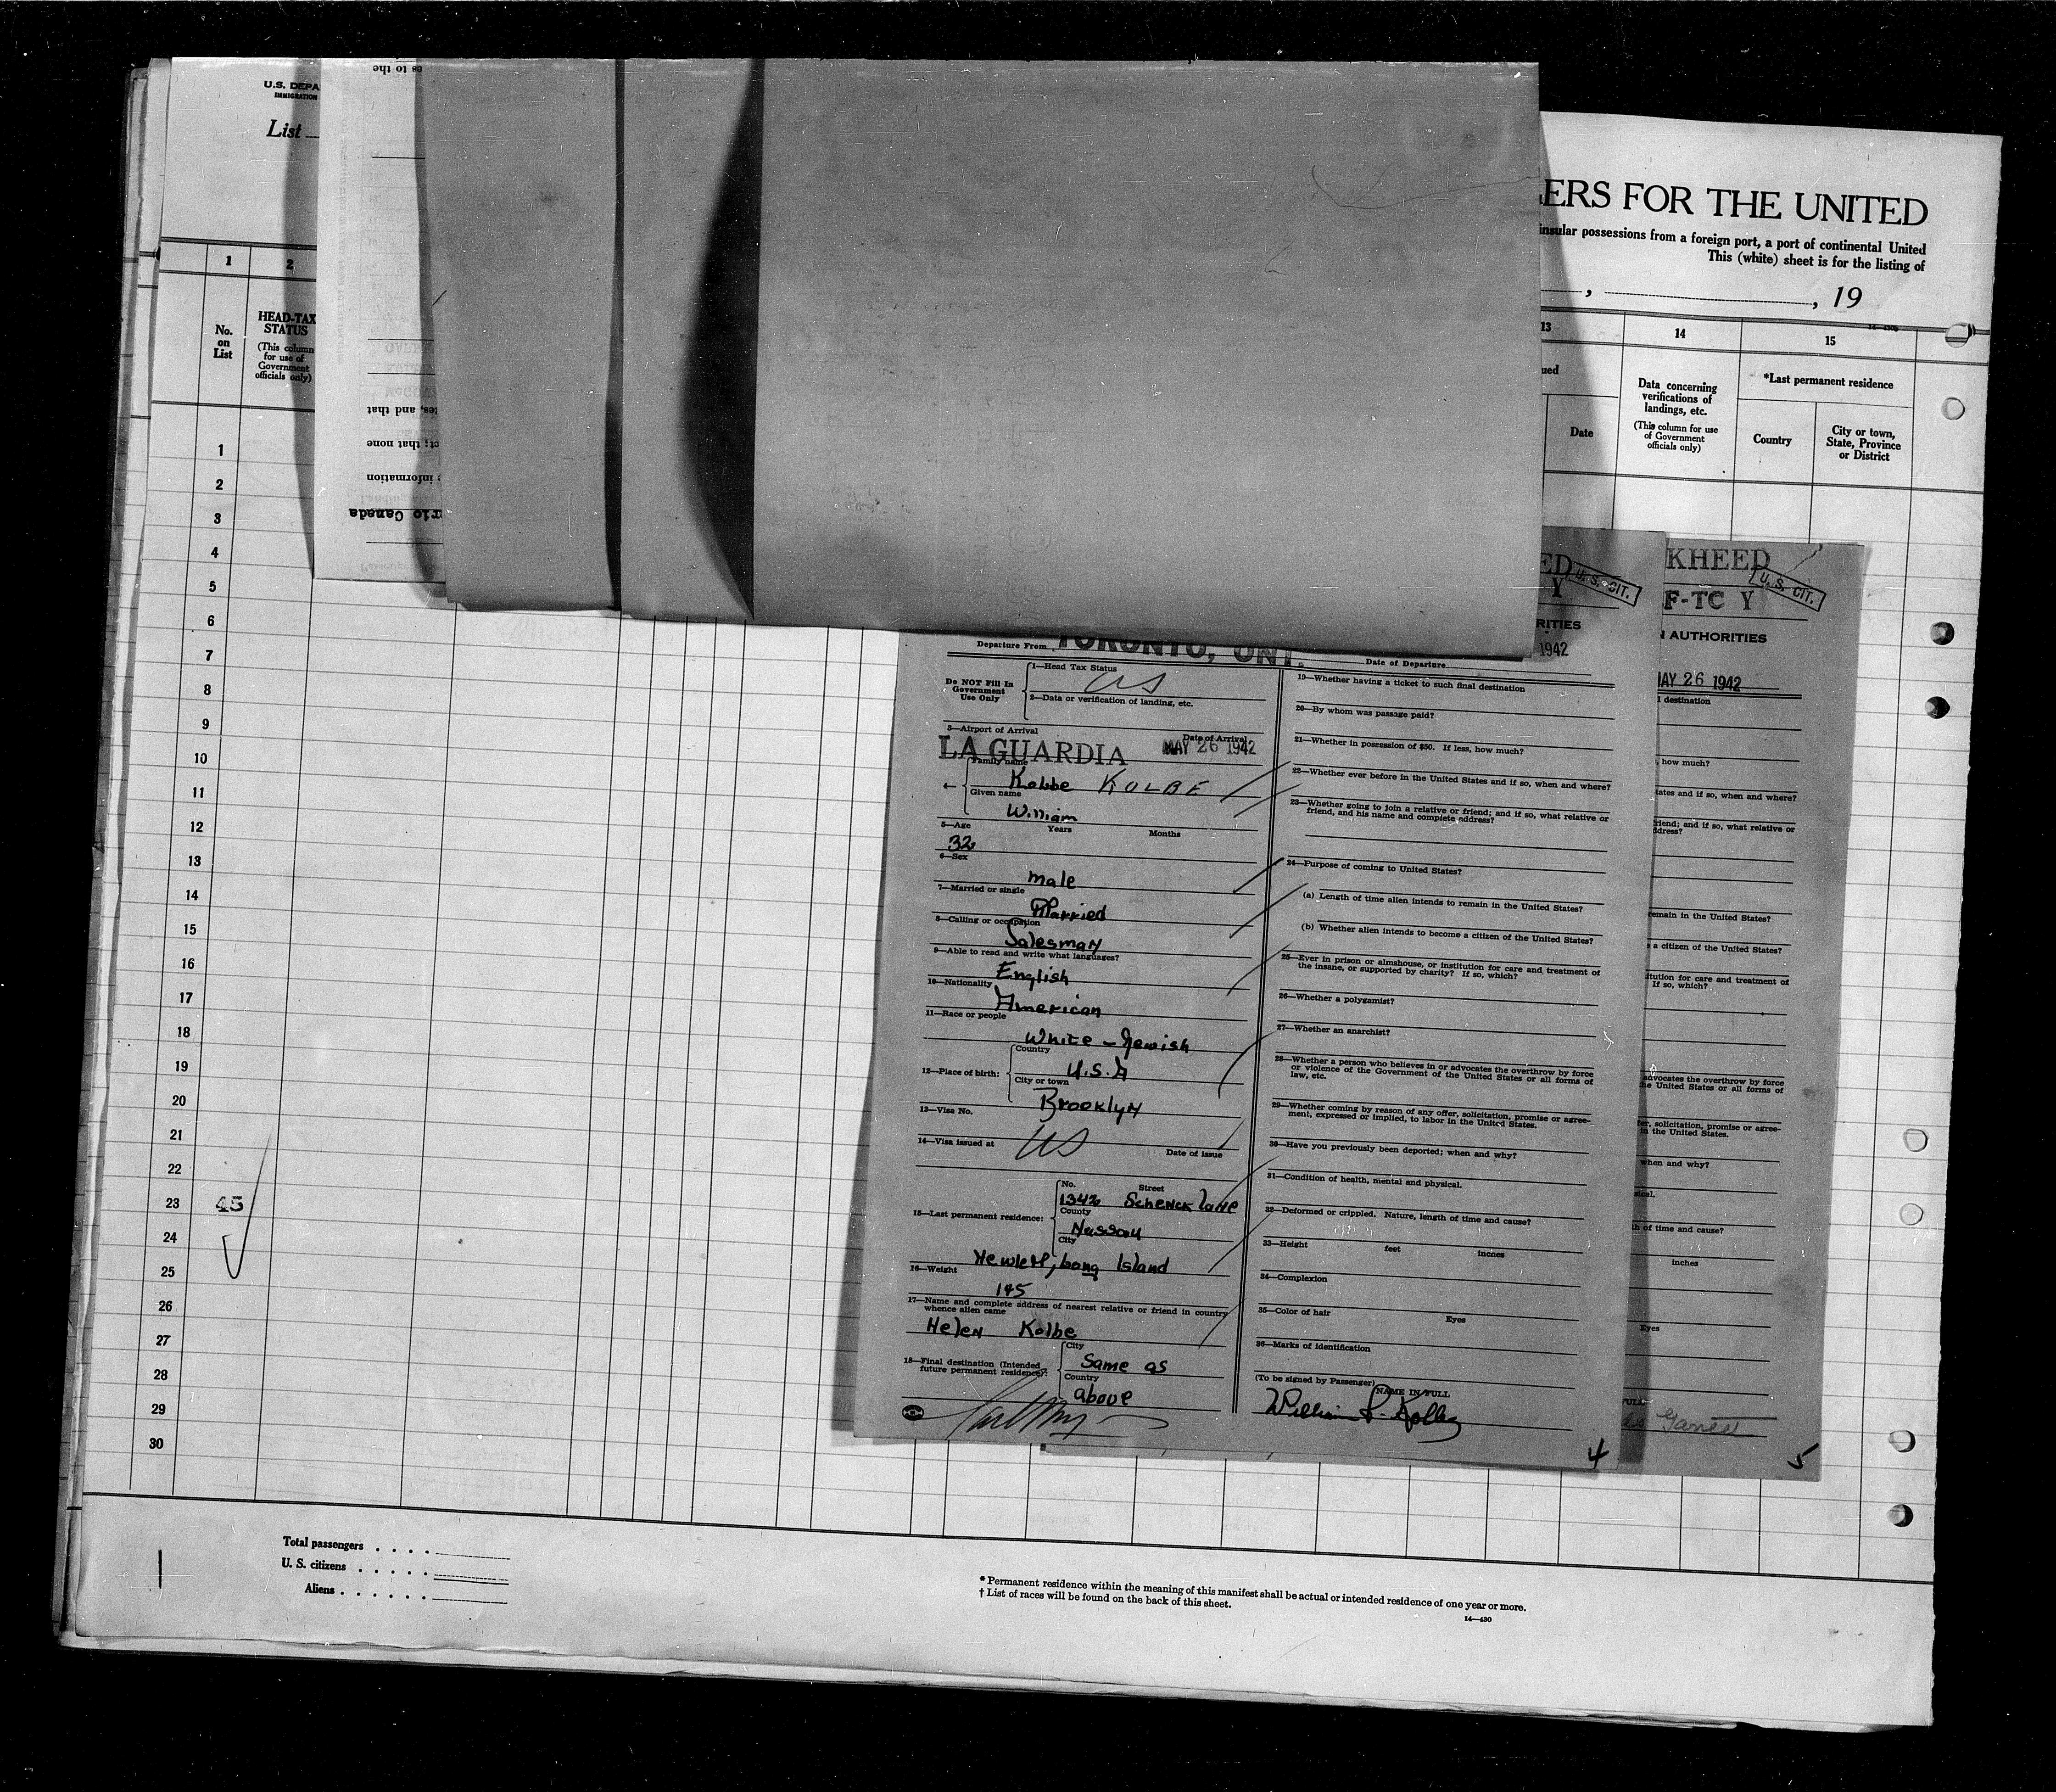 U.S. DEPA
IMMIGRATION
List
es to the
tes, and that
ct; that none
information
rio Canada
ERS FOR THE UNITED
insular possessions from a foreign port, a port of continental United
This (white) sheet is for the listing of
, 19
1
2
No.
on
List
HEAD-TAX
STATUS
(This column
for use of
Government
officials only)
13
14
15
ued
Date
Data concerning
verifications of
landings, etc.
(This column for use
of Government
officials only)
*Last permanent residence
Country
City or town,
State, Province
or District
1
2
3
4
5
6
7
8
9
10
11
12
13
14
15
16
17
18
19
20
21
22
23
45
24
25
26
27
28
29
30
ED
Y
U. S. CIT.
RITIES
1942
Departure From TORONTO, ONT.
Date of Departure
Do NOT Fill In
Government
Use Only
1—Head Tax Status
US
2—Data or verification of landing, etc.
3—Airport of Arrival
Date of Arrival
LA GUARDIA MAY 26 1942
Family name
Kobbe KOLBE
Given name
William
5—Age
Years
Months
32
6—Sex
male
7—Married or single
Married
8—Calling or occupation
Salesman
9—Able to read and write what languages?
English
10—Nationality
American
11—Race or people
White - Jewish
12—Place of birth:
Country
U.S.A
City or town
Brooklyn
13—Visa No.
US
14—Visa issued at
Date of issue
15—Last permanent residence:
No.
Street
1342 Schenck Lane
County
Nassau
City
Hewlett, Long Island
16—Weight
145
17—Name and complete address of nearest relative or friend in country
whence alien came
Helen Kolbe
18—Final destination (Intended
future permanent residence)?
City
Same as
Country
above
19—Whether having a ticket to such final destination
20—By whom was passage paid?
21—Whether in possession of $50. If less, how much?
22—Whether ever before in the United States and if so, when and where?
23—Whether going to join a relative or friend; and if so, what relative or
friend, and his name and complete address?
24—Purpose of coming to United States?
(a) Length of time alien intends to remain in the United States?
(b) Whether alien intends to become a citizen of the United States?
25—Ever in prison or almshouse, or institution for care and treatment of
the insane, or supported by charity? If so, which?
26—Whether a polygamist?
27—Whether an anarchist?
28—Whether a person who believes in or advocates the overthrow by force
or violence of the Government of the United States or all forms of
law, etc.
29—Whether coming by reason of any offer, solicitation, promise or agree-
ment, expressed or implied, to labor in the United States.
30—Have you previously been deported; when and why?
31—Condition of health, mental and physical.
32—Deformed or crippled. Nature, length of time and cause?
33—Height
feet
inches
34—Complexion
35—Color of hair
Eyes
36—Marks of identification
(To be signed by Passenger)
NAME IN FULL
William P. Kolbe
4
KHEED
U. S. CIT.
F-TC Y
N AUTHORITIES
MAY 26 1942
l destination
, how much?
tates and if so, when and where?
friend; and if so, what relative or
ddress?
remain in the United States?
e a citizen of the United States?
titution for care and treatment of
If so, which?
advocates the overthrow by force
the United States or all forms of
fer, solicitation, promise or agree-
in the United States.
when and why?
sical.
th of time and cause?
inches
Eyes
FULL
5
Total passengers . . . .
U. S. citizens . . . . .
Aliens . . . . . .
* Permanent residence within the meaning of this manifest shall be actual or intended residence of one year or more.
† List of races will be found on the back of this sheet.
14—430